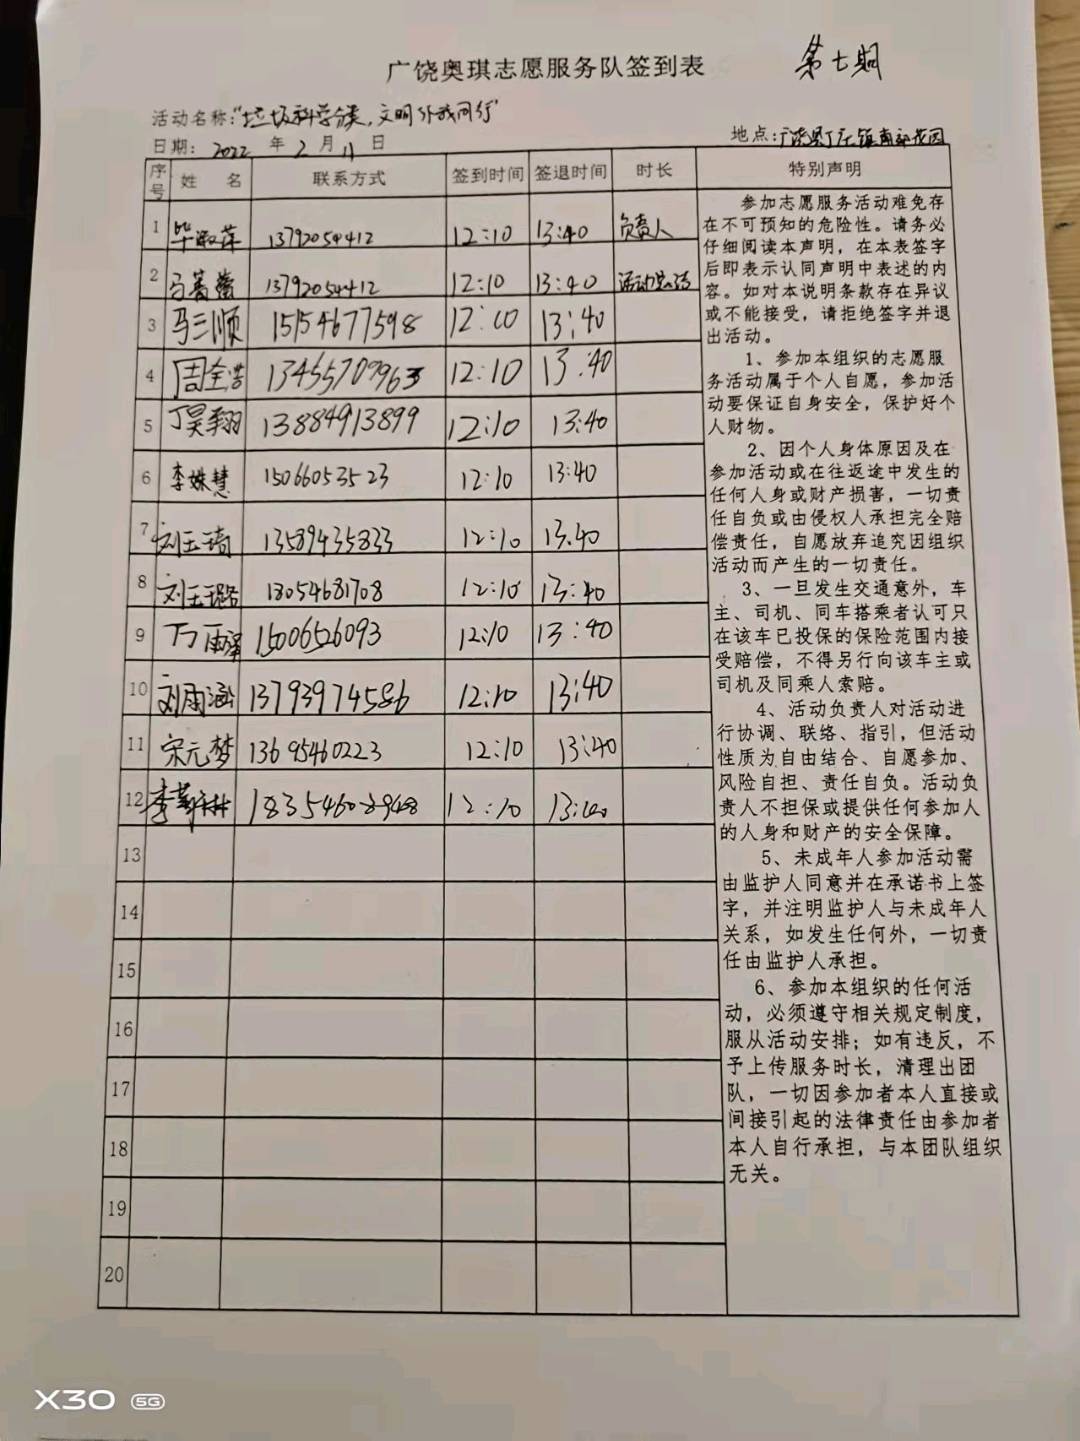 广饶奥琪志愿服务队签到表
第七期
活动名称：“垃圾科学分类，文明你我同行”
日期：2022 年 2 月 11 日
地点：广饶县丁庄镇南部花园
序号 姓 名 联系方式 签到时间 签退时间 时长 特别声明
1 毕淑萍 13792054412 12:10 13:40 负责人
2 马蔷薇 13792054412 12:10 13:40
3 马三顺 15154677598 12:10 13:40
4 周全浩 13455709963 12:10 13:40
5 丁昊翔 13884913899 12:10 13:40
6 李姝慧 15066053523 12:10 13:40
7 刘玉琦 13589435833 12:10 13:40
8 刘玉璐 18054681708 12:10 13:40
9 丁雨泽 15006526093 12:10 13:40
10 刘雨涵 13793974586 12:10 13:40
11 宋元梦 13695460223 12:10 13:40
12 李 12:10 13:40
13
14
15
16
17
18
19
20
参加志愿服务活动难免存
在不可预知的危险性。请务必
仔细阅读本声明，在本表签字
后即表示认同声明中表述的内
容。如对本说明条款存在异议
或不能接受，请拒绝签字并退
出活动。
1、参加本组织的志愿服
务活动属于个人自愿，参加活
动要保证自身安全，保护好个
人财物。
2、因个人身体原因及在
参加活动或在往返途中发生的
任何人身或财产损害，一切责
任自负或由侵权人承担完全赔
偿责任，自愿放弃追究因组织
活动而产生的一切责任。
3、一旦发生交通意外，车
主、司机、同车搭乘者认可只
在该车已投保的保险范围内接
受赔偿，不得另行向该车主或
司机及同乘人索赔。
4、活动负责人对活动进
行协调、联络、指引，但活动
性质为自由结合、自愿参加、
风险自担、责任自负。活动负
责人不担保或提供任何参加人
的人身和财产的安全保障。
5、未成年人参加活动需
由监护人同意并在承诺书上签
字，并注明监护人与未成年人
关系，如发生任何外，一切责
任由监护人承担。
6、参加本组织的任何活
动，必须遵守相关规定制度，
服从活动安排；如有违反，不
予上传服务时长，清理出团
队，一切因参加者本人直接或
间接引起的法律责任由参加者
本人自行承担，与本团队组织
无关。
X30 5G